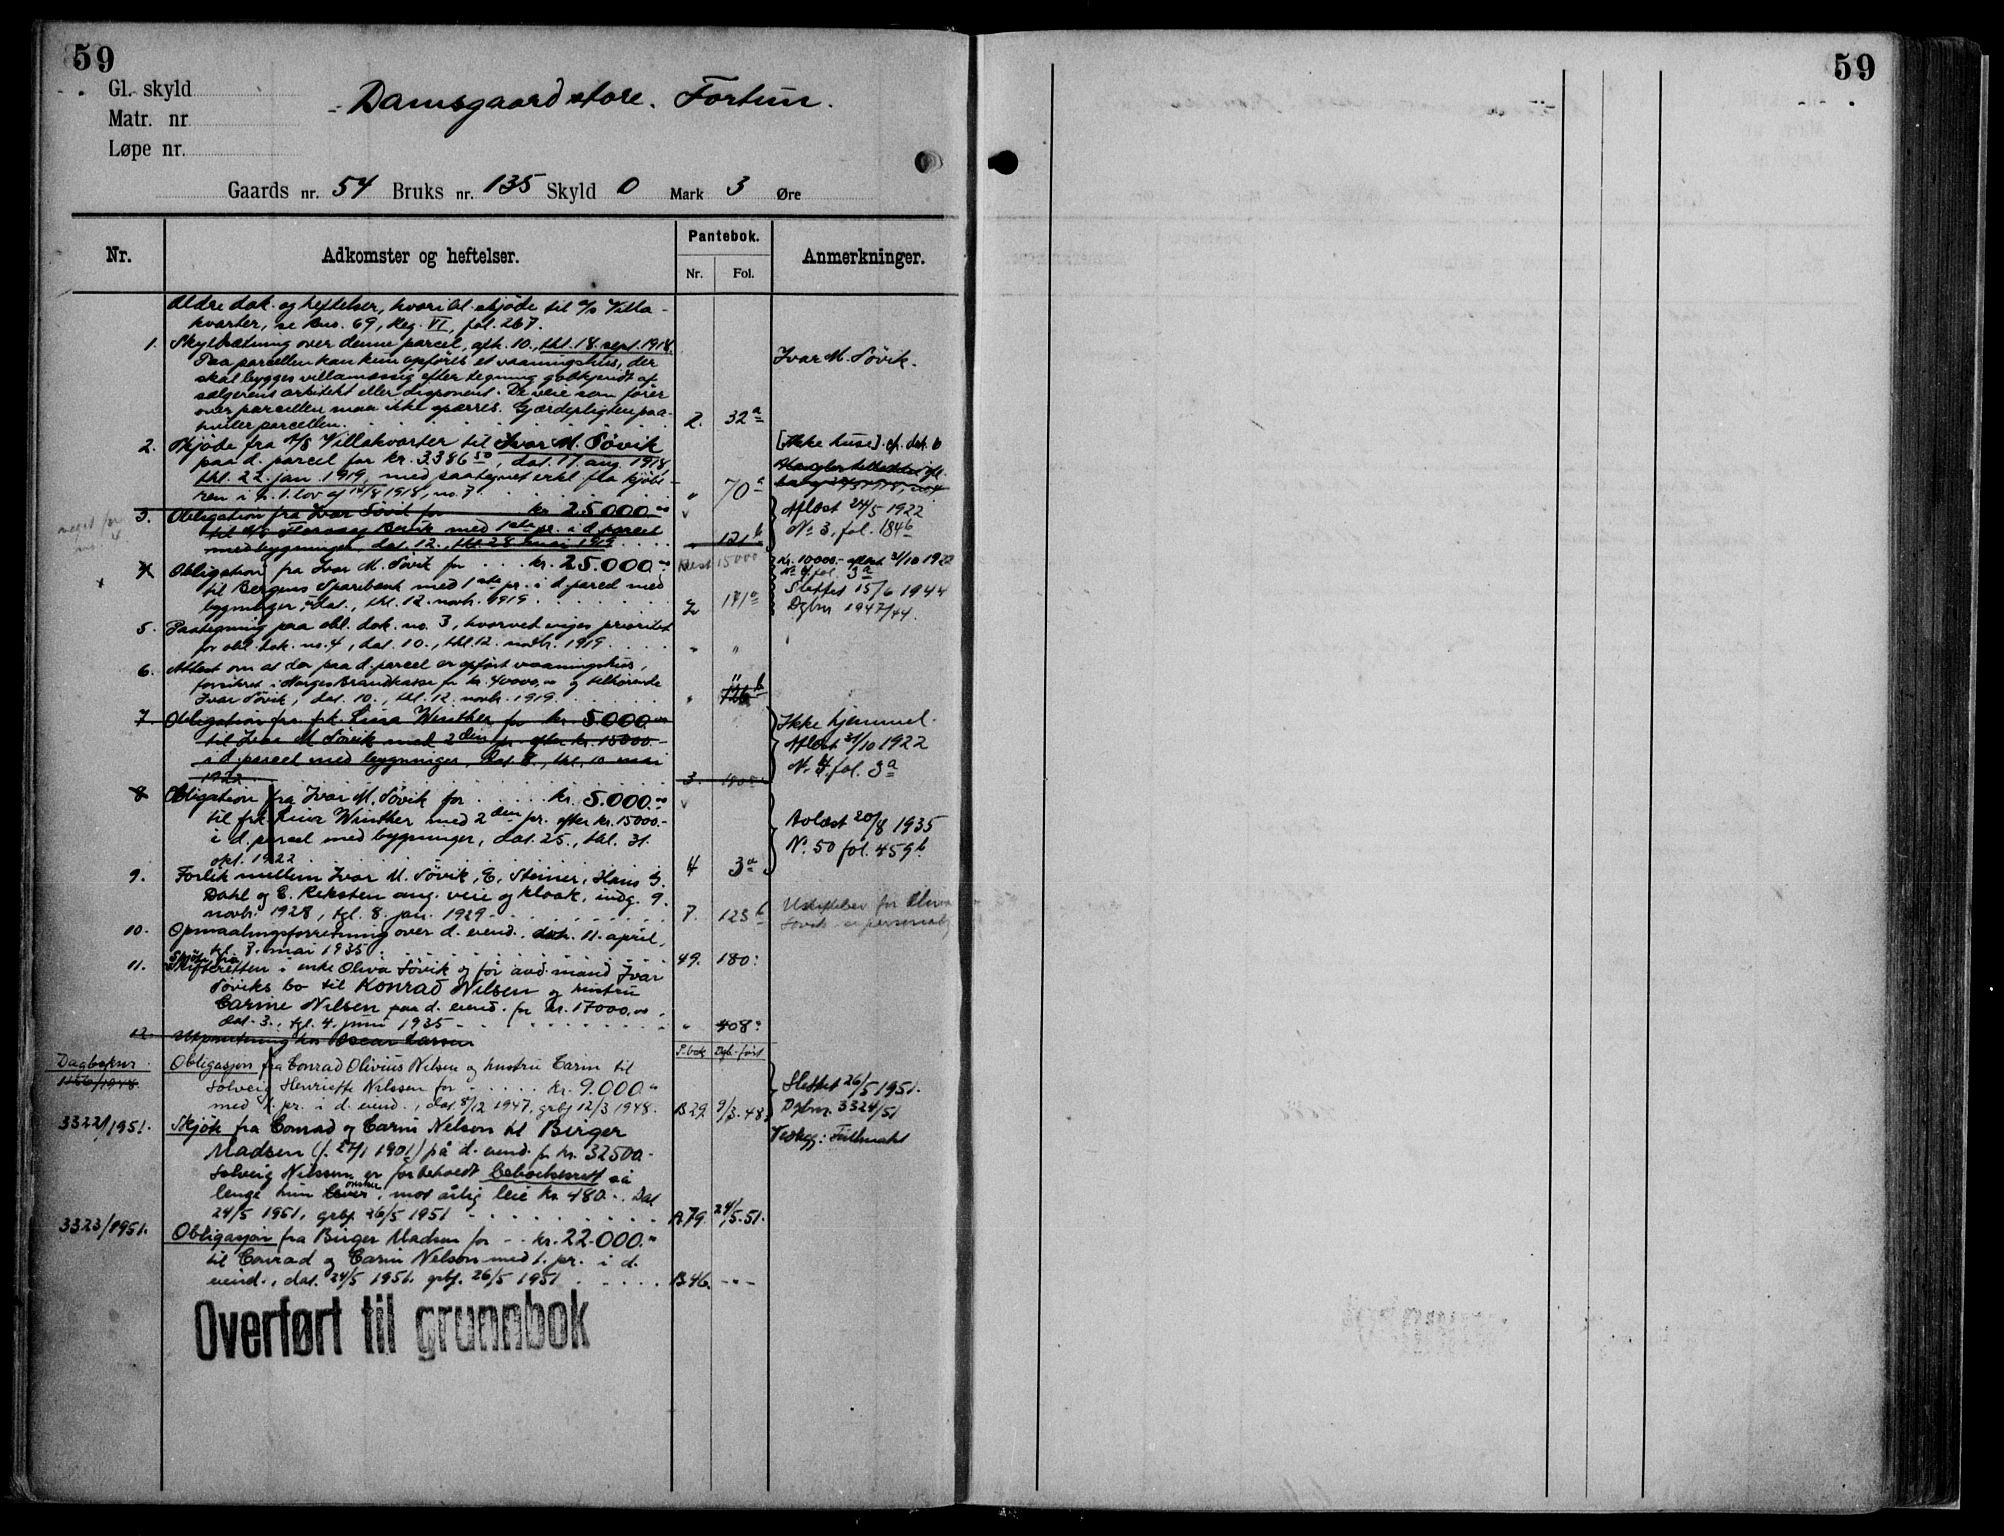 59
59
Gl. skyld
Matr. nr
Løpe nr.
Damsgaard store. Fortun.
Gaards nr. 54 Bruks nr. 135 Skyld 0 Mark 3 Øre
Nr.
Adkomster og heftelser.
Pantebok.
Nr.
Fol.
Anmerkninger.
Ældre dok. og heftelser, hvoribl. skjøde til A/S Villa-
kvarter, se Bus. 69, Reg. VI, fol. 267.
1. Skyldsætning over denne parcel, afh. 10., thl. 18. sept. 1918.
Paa parcellen kan kun opføres et vaaningshus, der
skal bygges villamæssig efter tegning godkjendt af
sælgerens arkitekt eller disponent. De veie som fører
over parcellen maa ikke spærres. Gjærdepligten paa-
hviler parcellen. 2. 32a
Ivar M. Søvik.
2. Skjøde fra A/S Villakvarter til Ivar M. Søvik
paa d. parcel for kr. 3386.50, dat. 17. aug. 1918,
thl. 22. jan. 1919, med paategnet erkl. fra kjøbe-
ren i h. t. lov af 16/8 1918, no. 7 " 70a
[Ikke huse] cf. dok. 6
3. Obligation fra Ivar Søvik for kr. 25.000.00
med 1ste pr. i d. parcel
med bygninger, dat. 12., thl. 28. mai 1919 121b
Aflæst 24/5 1922
No 3, fol. 184b
4. Obligation fra Ivar M. Søvik for kr. 25.000.00
til Bergens Sparebank med 1ste pr. i d. parcel med
bygninger, dat., thl. 12. novb. 1919 2 171a
Rest 15000
Kr. 10000.- aflæst 31/10 1922
No 4 fol. 3a
Slettet 15/6 1944
Dgbnr 1947/44.
5. Paategning paa obl. dok. no. 3, hvorved viges prioritet
for obl. dok. no. 4, dat. 10., thl. 12. novb. 1919. " "
6. Attest om at der paa d. parcel er opført vaaningshus,
forsikret i Norges Brandkasse for kr. 40000,00 og tilhørende
Ivar Søvik, dat. 10., thl. 12. novb. 1919 " "
7. Obligation fra frk. Lina Winther for kr. 5000.00
til Ivar M Søvik med 2den pr. efter kr. 15000.-
i d. parcel med bygninger, dat. 8., thl. 10 mai
1922 3.
Ikke hjemmel.
Aflæst 31/10 1922
No. 4, fol. 3a
8. Obligation fra Ivar M. Søvik for kr. 5.000.00
til frk. Lina Winther med 2den pr. efter kr. 15000.-
i d. parcel med bygninger, dat. 25., thl. 31.
okt. 1922 4 3a
Avlæst 20/8 1935
No. 50 fol. 459b.
9. Forlik mellem Ivar M. Søvik, E. Steiner, Hans G.
Dahl og E. Reksten ang. veie og kloak, indg. 9.
novb. 1928, tgl. 8. jan. 1929 7. 123b
10. Opmaalingsforretning over d. eiend. dat. 11. april,
tgl. 8. mai 1935 49. 180.
11. Skjøte fra
Skifteretten i enke Oliva Søvik og før avd. mand Ivar
Søviks bo til Konrad Nilsen og hustru
Carine Nilsen paa d. eiend. for kr. 17000,00,
dat. 3., tgl. 4. juni 1935 " 408.
12. Oscar Larsen
P.bok Dgb.-ført
Dagboknr
Obligasjon fra Conrad Olivius Nilsen og hustru Carin til
Solveig Henriette Nilssen for kr. 9.000.00
med 1. pr. i d. eiend., dat. 8/12 1947, grbf 12/3 1948. B29. 9/3.48.
Slettet 26/5 1951.
Dgbnr. 3324/51
3322/1951. Skjøte fra Conrad og Carin Nelson til Birger
Madsen (f. 27/1 1901) på d. eiend. for kr. 32500.-
Solveig Nilssen er forbeholdt beboelsesrett så
lenge hun ønsker, mot årlig leie kr. 480.-. Dat
24/5 1951, grbf 26/5 1951 A79. 24/5-51.
Vedlegg: Fullmakt
3323/1951. Obligasjon fra Birger Madsen for kr. 22.000.00
til Conrad og Carin Nelson med 1. pr. i d.
eiend., dat. 24/5 1951. grbf. 26/5 1951 B46. -"-
Overført til grunnbok